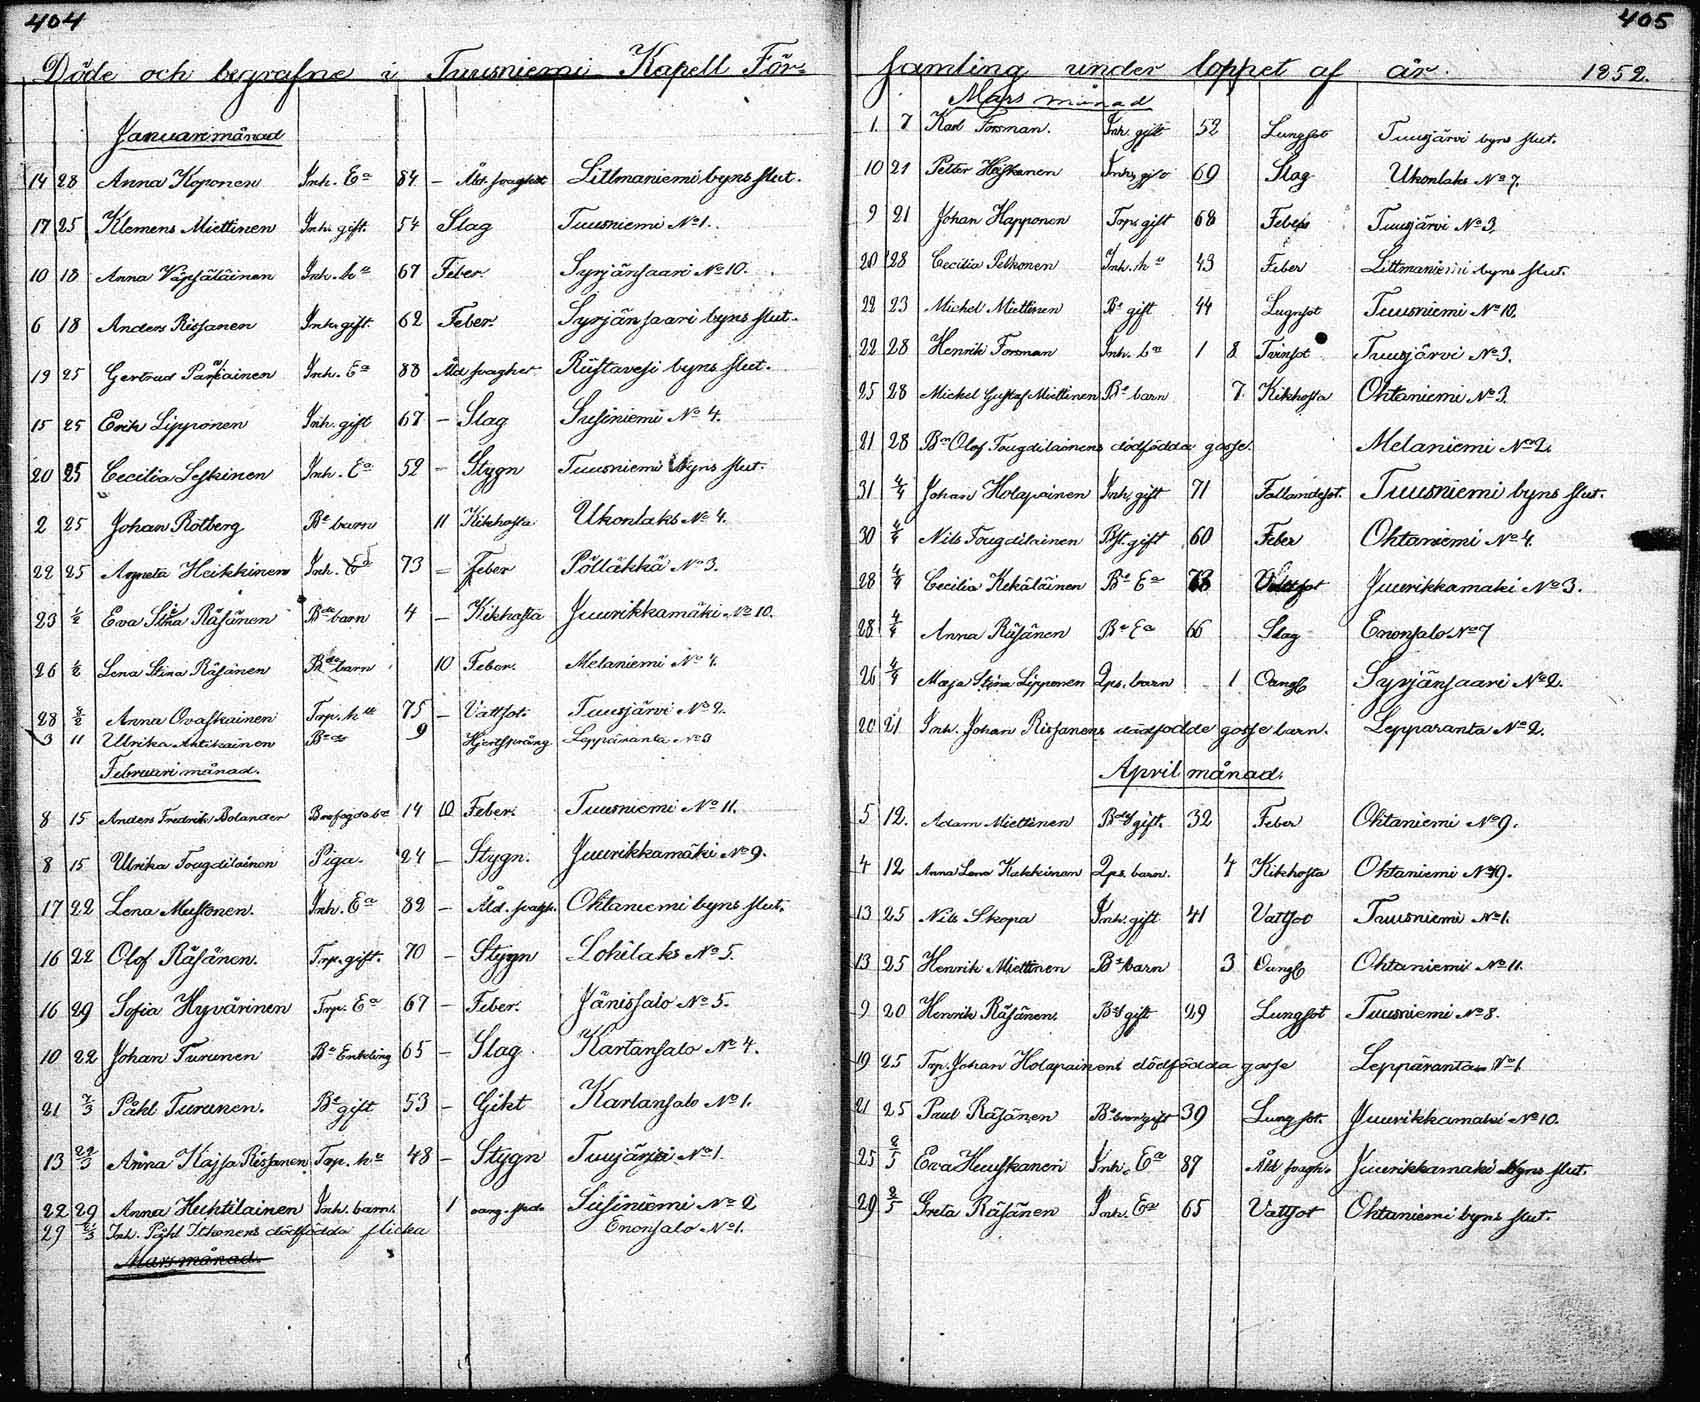 404
Döde och begrafne i Tuusniemi Kapell För-
Januari månad
14 28 Anna Koponen Inh. Ea 84 – Åld. svaghet Litlmaniemi byns slut.
17 25 Klemens Miettinen Inh. gift. 54 Slag Tuusniemi No 1.
10 18 Anna Väpsäläinen Inh. hu 67 Feber Syrjänsaari No 10.
6 18 Anders Rissanen Inh. gift. 62 Feber. Syrjänsaari byns slut.
19 25 Gertrud Inh. Ea 88 Åld svaghet Riistavesi byns slut.
15 25 Erik Lipponen Inh. gift 67 – Slag Susiniemi No 4.
20 25 Cecilia Leskinen Inh. Ea 52 – Stygn Tuusniemi byns slut.
2 25 Johan Rotberg Be barn 11 Kikhosta Ukonlaks No 4.
22 25 Agneta Heikkinen Inh. Ea 73 – Feber Pölläkkä No 3.
23 1/2 Eva Stina Räsänen Bde barn 4 – Kikhosta Juurikkamäki No 10.
26 1/2 Lena Stina Räsänen Bde barn 10 Feber. Melaniemi No 4.
28 8/2 Anna Ovaskainen Torp. hu 75 – Vattsot. Tuusjärvi No 2.
3 11 Ulrika Antikainen 9 Hjertsprång Leppäranta No 3
Februari månad.
8 15 Anders Fredrik Bolander 14 10 Feber. Tuusniemi No 11.
8 15 Ulrika Tougdilainen Piga. 24 – Stygn. Juurikkamäki No 9.
17 22 Lena Mustonen. Inh. Ea 82 – Åld. svagh. Ohtaniemi byns slut.
16 22 Olof Räsänen. Torp. gift. 70 – Stygn Lohilaks No 5.
16 29 Sofia Hyvärinen Torp. Ea 67 – Feber. Jänissalo No 5.
10 22 Johan Turunen Be Enkeling 65 – Slag Kartansalo No 4.
21 7/3 Påhl Turunen. Be gift 53 – Gikt Kartansalo No 1.
13 22/3 Anna Kajsa Rissanen Torp. hu 48 – Stygn Tuusjärvi No 1.
22 29 Anna Huhtilainen Inh. barn. 1 Susiniemi No 2
29 21/3 Inh. Påhl Itkonens dödfödda flicka Enonsalo No 1.
Mars månad.
405
samling under loppet af år. 1852.
Mars månad
1. 7 Karl Forsman. Inh. gift 52 Lungsot Tuusjärvi byns slut.
10 21 Petter Hyttinen Inh. gift 69 Slag Ukonlaks No 7.
9 21 Johan Happonen Torp. gift 68 Feber Tuusjärvi No 3.
20 28 Cecilia Pelkonen Inh. hu 43 Feber Litlmaniemi byns slut.
22 23 Michel Miettinen Be gift 44 Lungsot Tuusniemi No 10.
22 28 Henrik Forsman Inh. bn 1 8 Tvinsot Tuusjärvi No 3.
25 28 Michel Gustaf Miettinen Be barn 7. Kikhosta Ohtaniemi No 3.
21 28 Bn Olof Tougdilainens dödfödda gosse. Melaniemi No 2.
31 4/4 Johan Holapainen Inh. gift 71 Fallandesot. Tuusniemi byns slut.
30 4/4 Nils Tougdilainen gift 60 Feber Ohtaniemi No 4.
28 4/4 Cecilia Kekäläinen Be Ea 73 Vattsot Juurikkamaki No 3.
28 4/4 Anna Räsänen Be Ea 66 Slag Enonsalo No 7
26 4/4 Maja Stina Lipponen barn 1 Oangf Syrjänsaari No 2.
20 21 Inh. Johan Rissanens dödfödde gosse barn. Lepparanta No 2.
April månad.
5 12. Adam Miettinen Bds gift. 32 Feber Ohtaniemi No 9.
4 12 Anna Lena Kakkinen barn. 4 Kikhosta Ohtaniemi No 19.
13 25 Nils Skopa Inh. gift 41 Vattsot Tuusniemi No 1.
13 25 Henrik Miettinen Be barn 3 Oangf Ohtaniemi No 11.
9 20 Henrik Räsänen. Bds gift 29 Lungsot Tuusniemi No 8.
19 25 Torp. Johan Holapainens dödfödda gosse Leppäranta No 1
21 25 Paul Räsänen 39 Lungsot. Juurikkamaki No 10.
25 2/5 Eva Huuskanen Inh. Ea 87 Åld svagh. Juurikkamaki byns slut.
29 2/5 Greta Räsänen Inh. Ea 65 Vattsot Ohtaniemi byns slut.